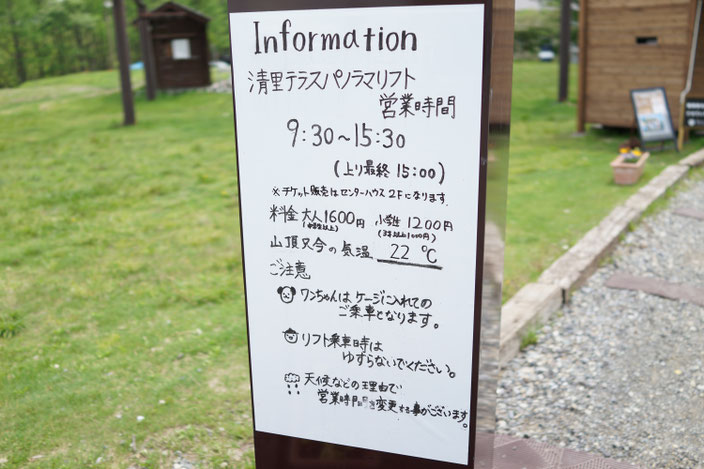 Information
清里テラスパノラマリフト
営業時間
9:30～15:30
(上り最終 15:00)
※チケット販売はセンターハウス2Fになります
料金 大人1600円 小学生1200円
(中学生以上)
山頂 今の気温 22℃
ご注意
ワンちゃんはケージに入れての
ご乗車となります。
リフト乗車時は
ゆすらないでください。
天候などの理由で
営業時間を変更する事がございます。